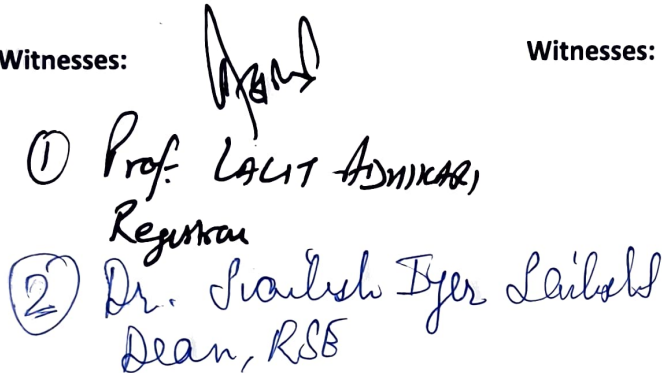 Witnesses:
Witnesses:
① Prof. LALIT ADHIKARI,
Registrar
② Dr. Sailesh Iyer
Dean, RSE